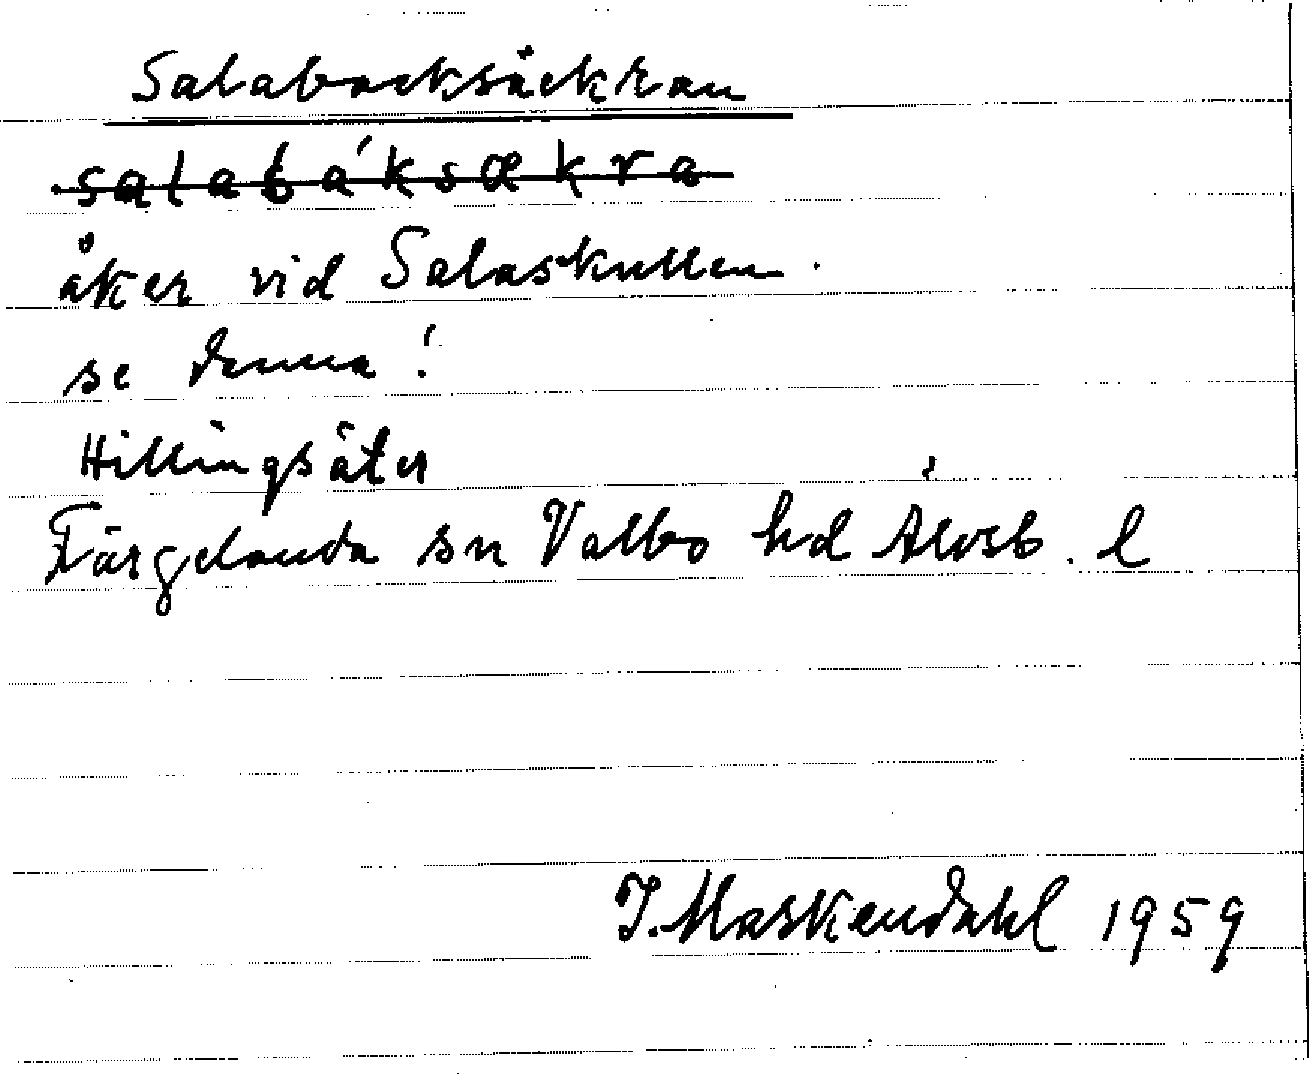 Salabacksåckran
salabáksækra
åker vid Salaskullen.
se denna!
Hillingsäter
Färgelanda sn Valbo hd Älvsb. l
J. Maskendahl 1959